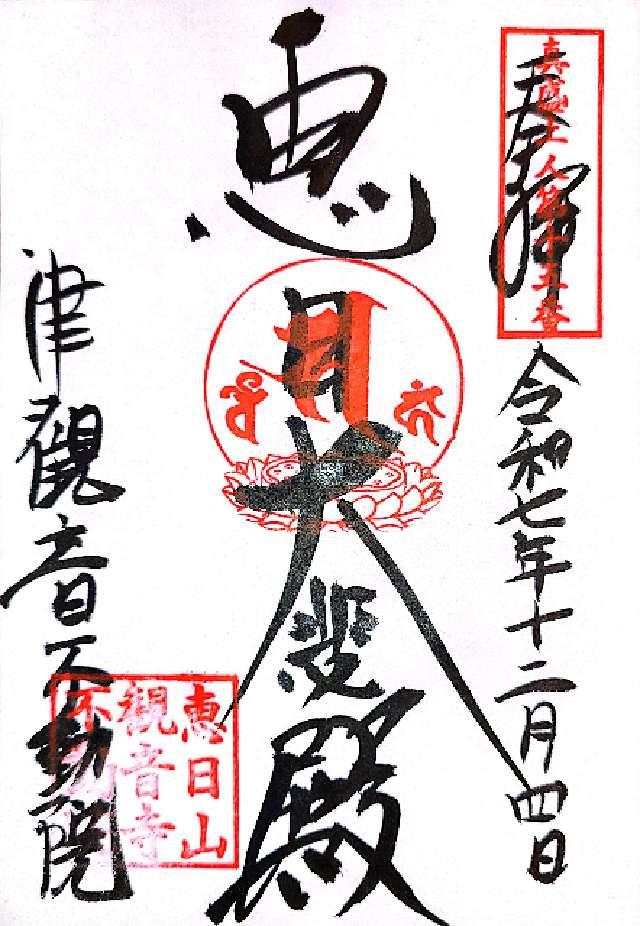 奉拝
真盛上人第十五番
令和七年十二月四日
恵日大悲殿
津觀音不動院
恵日山
觀音寺
不動院